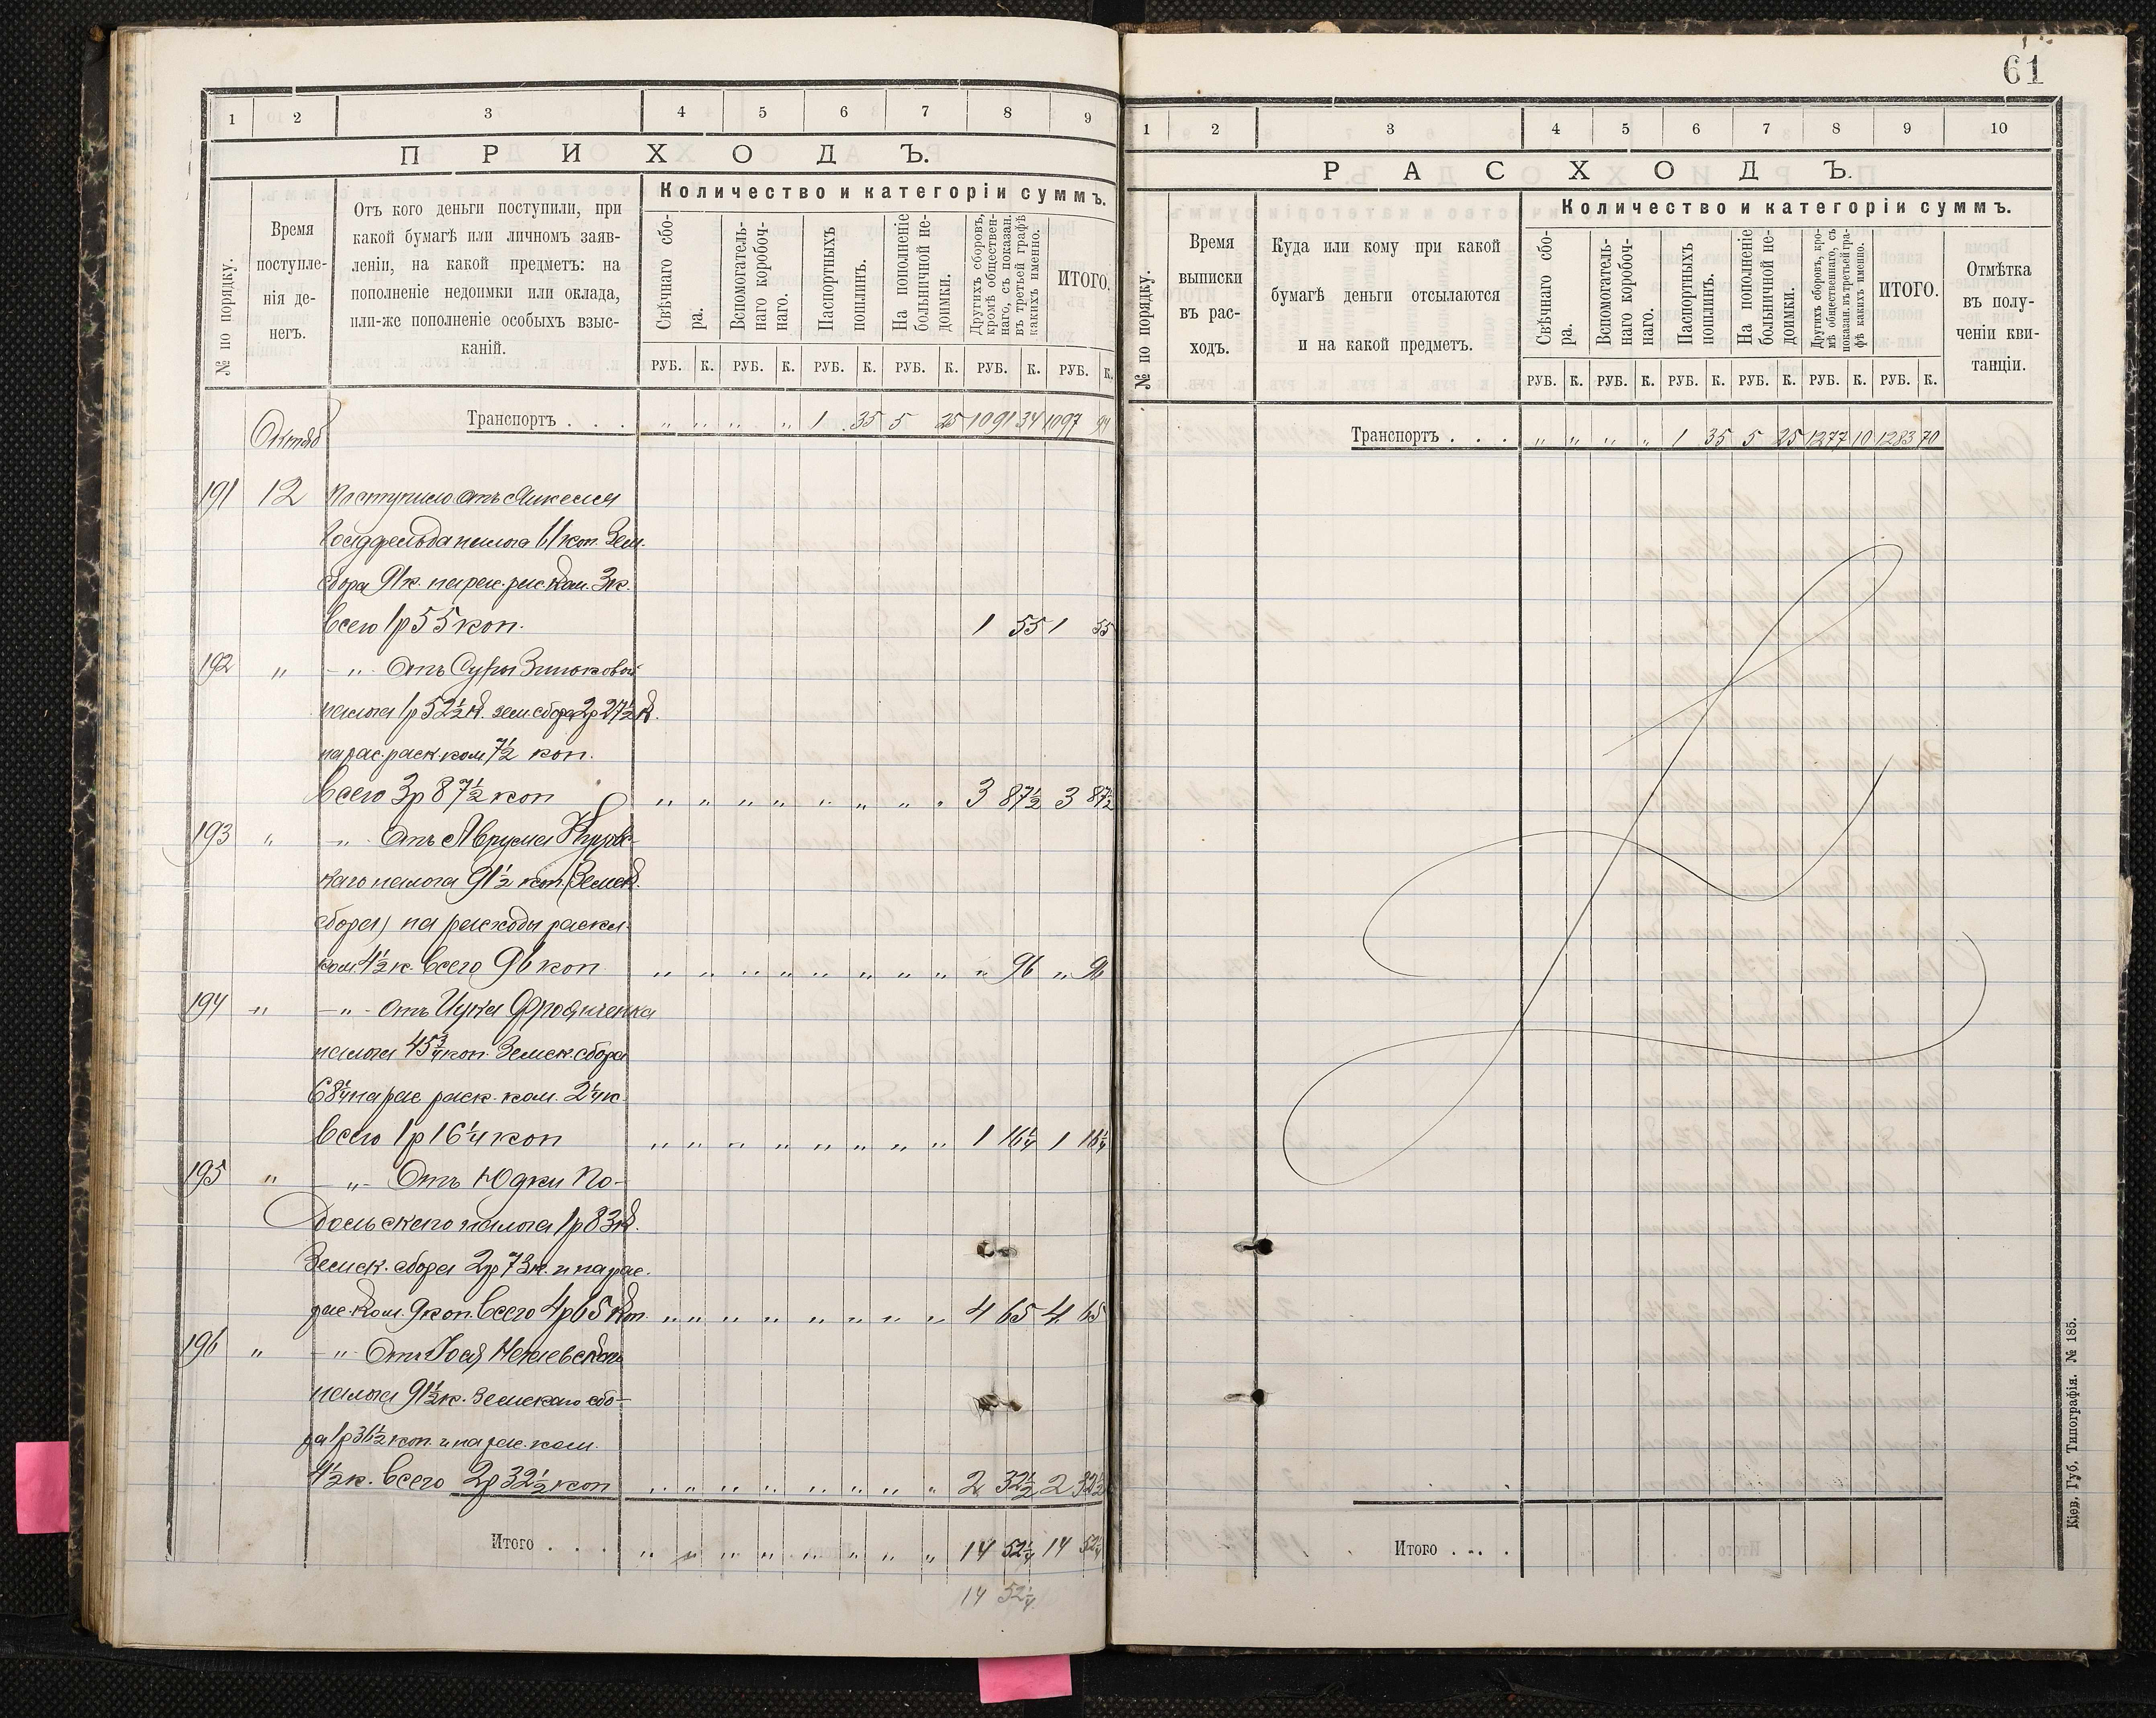 1 2 3 4 5 6 7 8 9
ПРИХОДЪ.
№ по порядку.
Время поступле-
нія де-
негъ.
Отъ кого деньги поступили, при
какой бумагѣ или личномъ заяв-
леніи, на какой предметъ: на
пополненіе недоимки или оклада,
или-же пополненіе особыхъ взыс-
каній.
Количество и категоріи суммъ.
Свѣчнаго сбо-
ра.
Вспомогатель-
наго коробоч-
наго.
Паспортныхъ
пошлинъ.
На пополненіе
больничной не-
доимки.
Другихъ сборовъ,
кромѣ обществен-
наго, съ показан.
въ третьей графѣ
какихъ именно.
ИТОГО.
РУБ. К. РУБ. К. РУБ. К. РУБ. К. РУБ. К. РУБ. К.
Октяб
Транспортъ . . . „ „ „ „ 1 35 5 25 1091 34 1097 94
191 12 Поступило отъ Янкеля
налога 61 коп. Зем.
сбора 91 к. на рас. рас. ком. 3 к.
Всего 1 р 55 коп. 1 55 1 55
192 „ — „ — Отъ Суры Зиньковой
налога 1 р 52½ к. зем. сбора 2 р 27½ к.
на рас. раск. ком 7½ коп.
Всего 3 р 87½ коп „ „ „ „ „ „ „ „ 3 87½ 3 87½
193 „ — „ — Отъ Аврума
каго налога 91½ коп. (Земск.
сбора) на расходы раскл.
ком 4½ к. Всего 96 коп „ „ „ „ „ „ „ „ „ 96 „ 96
194 „ — „ — Отъ
налога 45¾ коп. Земск. сбора
68¼ на рас раск. ком. 2¼ к.
Всего 1 р 16¼ коп „ „ „ „ „ „ „ „ 1 16¼ 1 16¼
195 „ — „ — Отъ Юдки По-
дольскаго налога 1 р 83 к.
Земск. сбора 2 р 73 к. и на рас.
рас. ком. 9 коп. Всего 4 р 65 коп. „ „ „ „ „ „ „ „ 4 65 4 65
196 „ — „ — Отъ
налога 91½ к. Земскаго сбо-
ра 1 р 36½ коп. и на рас. ком.
4½ к. Всего 2 р 32½ коп „ „ „ „ „ „ „ „ 2 32½ 2 32½
Итого . . . „ „ „ „ „ „ „ „ 14 52¼ 14 52¼
14 52¼
61
1 2 3 4 5 6 7 8 9 10
РАСХОДЪ.
№ по порядку.
Время
выписки
въ рас-
ходъ.
Куда или кому при какой
бумагѣ деньги отсылаются
и на какой предметъ.
Количество и категоріи суммъ.
Свѣчнаго сбо-
ра.
Вспомогатель-
наго коробоч-
наго.
Паспортныхъ
пошлинъ.
На пополненіе
больничной не-
доимки.
Другихъ сборовъ, кро-
мѣ общественнаго, съ
показан. въ третьей гра-
фѣ какихъ именно.
ИТОГО.
Отмѣтка
въ полу-
ченіи кви-
танціи.
РУБ. К. РУБ. К. РУБ. К. РУБ. К. РУБ. К. РУБ. К.
Транспортъ . . . „ „ „ „ 1 35 5 25 1277 10 1283 70
Итого . . .
Кіев. Губ. Типографія. № 185.